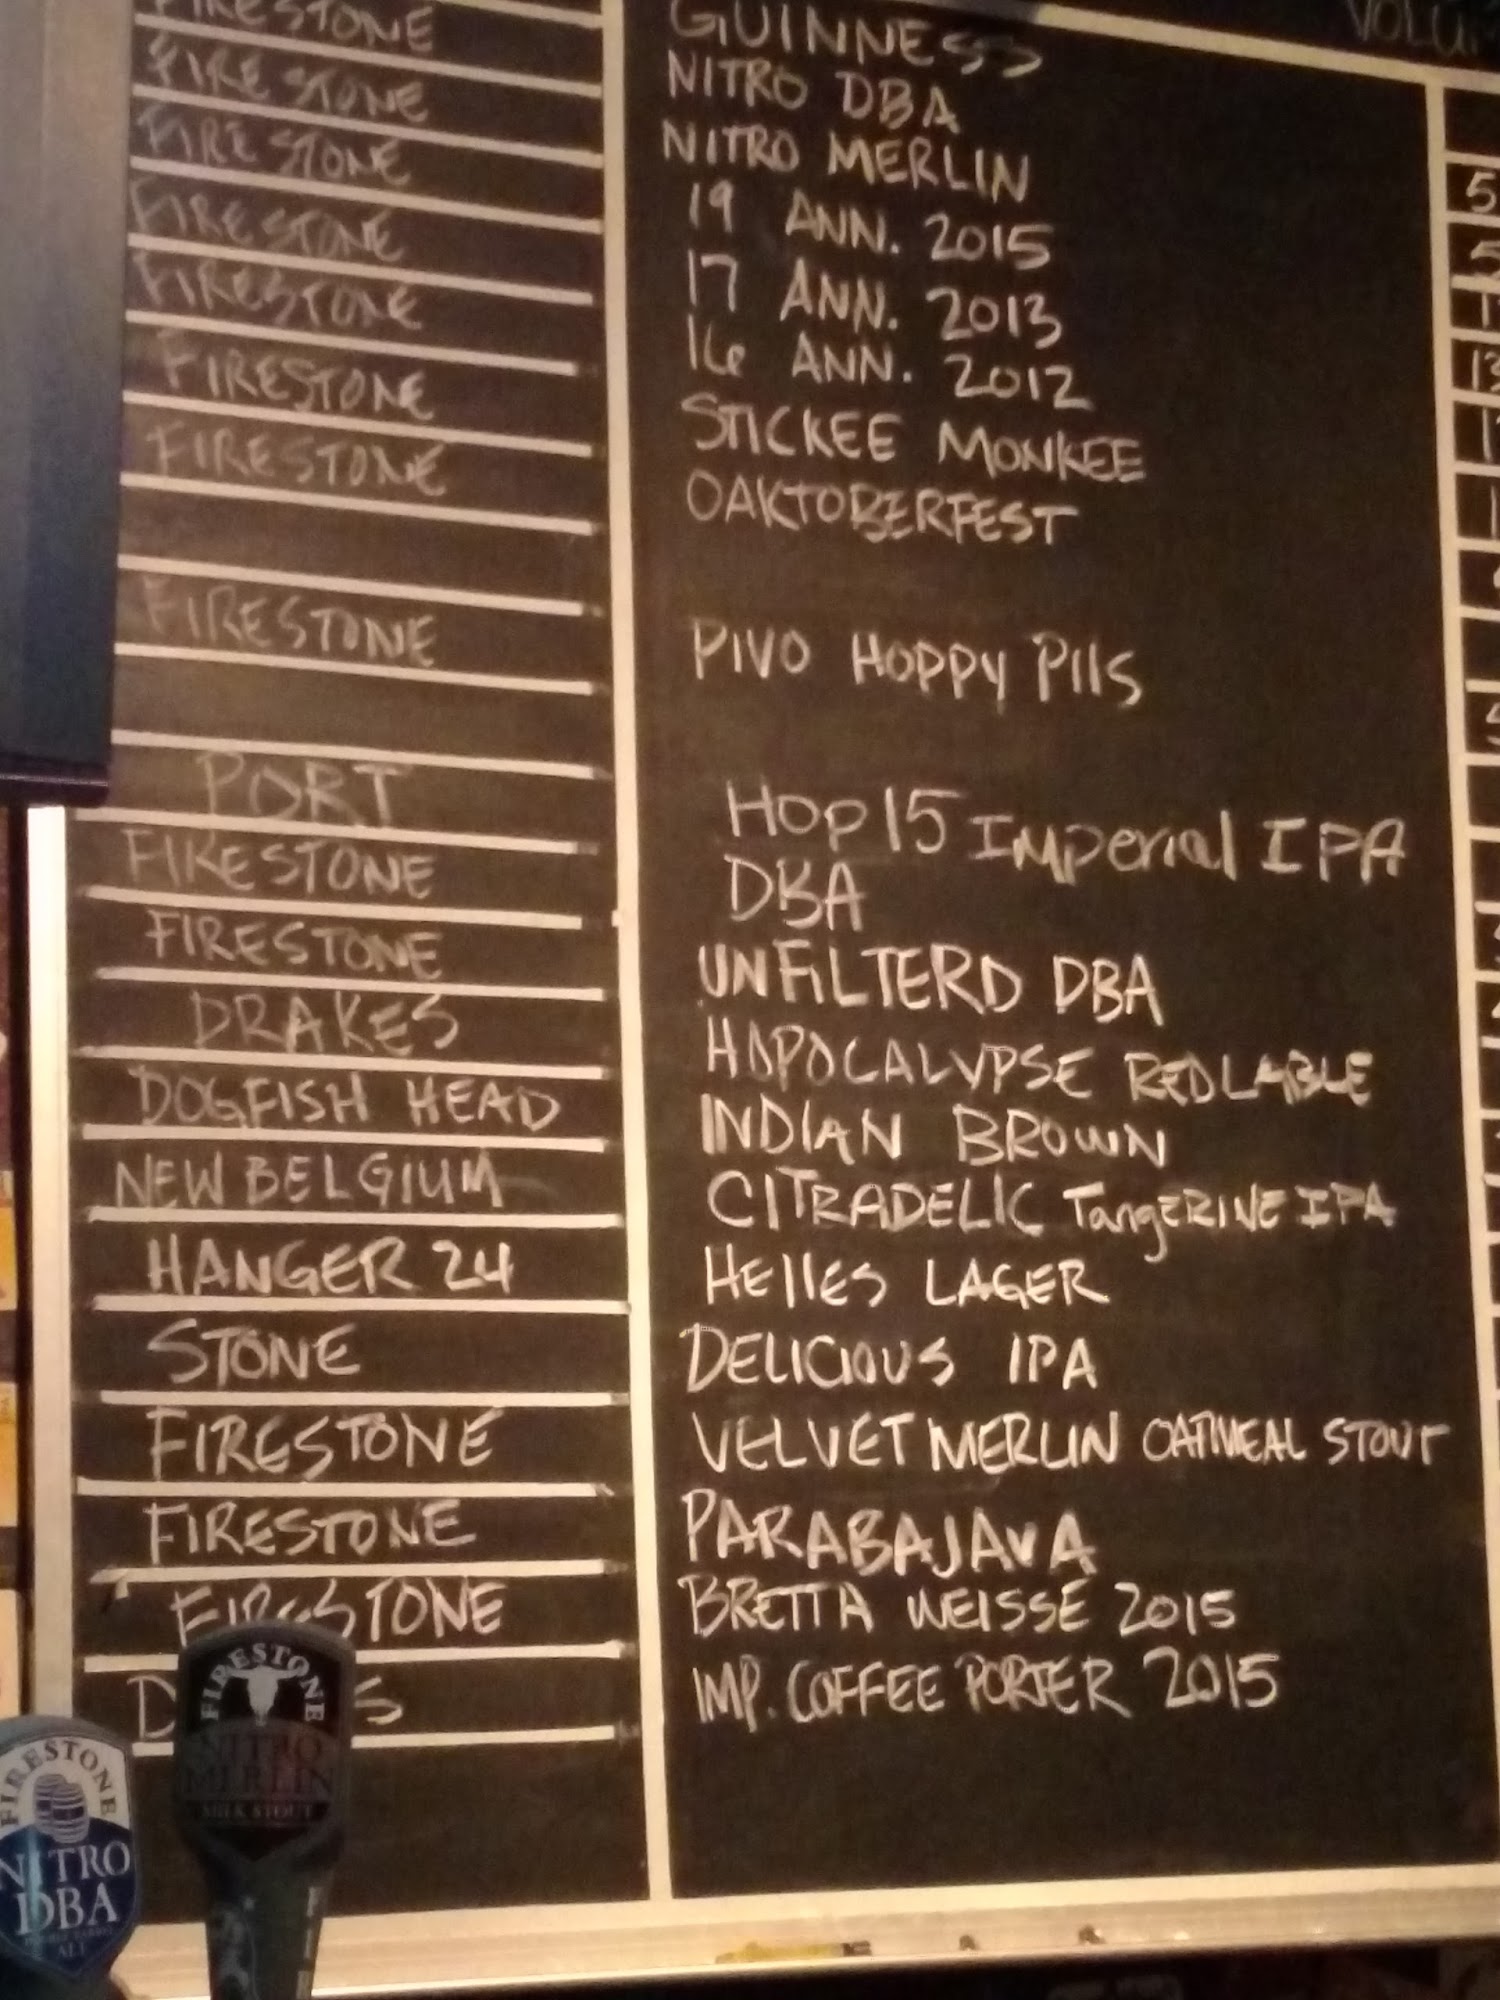 GUINNESS
FIRESTONE NITRO DBA
FIRESTONE NITRO MERLIN
FIRESTONE 19 ANN. 2015
FIRESTONE 17 ANN. 2013
FIRESTONE 16 ANN. 2012
FIRESTONE STICKEE MONKEE
FIRESTONE OAKTOBERFEST
FIRESTONE PIVO HOPPY PIlS
PORT HOP 15 Imperial IPA
FIRESTONE DBA
FIRESTONE UNFiLTERD DBA
DRAKES HOPOCALYPSE REDLABLE
DOGFISH HEAD INDIAN BROWN
NEW BELGIUM CITRADELIC TangERINE IPA
HANGER 24 HEllES LAGER
STONE DELICIOUS IPA
FIRESTONE VELVET MERLIN OATMEAL STOUT
FIRESTONE PARABAJAVA
FIRESTONE BRETTA WEISSE 2015
IMP. COFFEE PORTER 2015
FIRESTONE
NITRO
MERLIN
MILK STOUT
FIRESTONE
NITRO
DBA
ALE